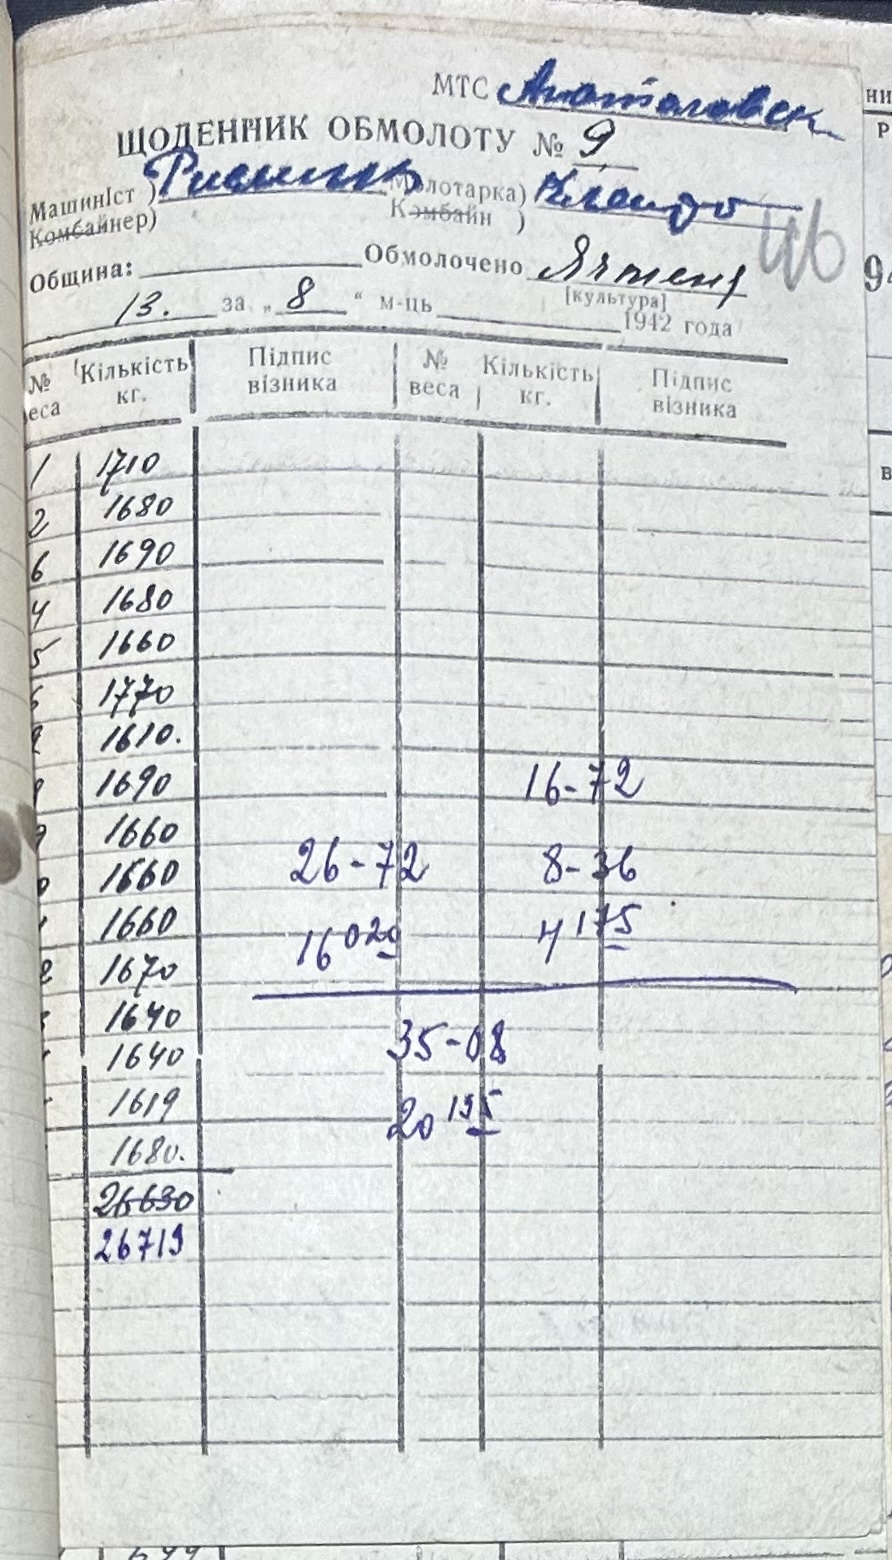 МТС
ЩОДЕННИК ОБМОЛОТУ № 9
Машиніст ) Молотарка)
Комбайнер) Комбайн )
46
Община: Обмолочено Ячмень
[культура]
13. за „ 8 “ м-ць 1942 года
№ веса Кількість кг. Підпис візника № веса Кількість кг. Підпис візника
1 1710
2 1680
6 1690
4 1680
5 1660
1770
1610.
1690 16-72
1660
1660 26-72 8-36
1660 16020 4175
1670
1640
1640 35-08
1619 20195
1680.
26630
26719